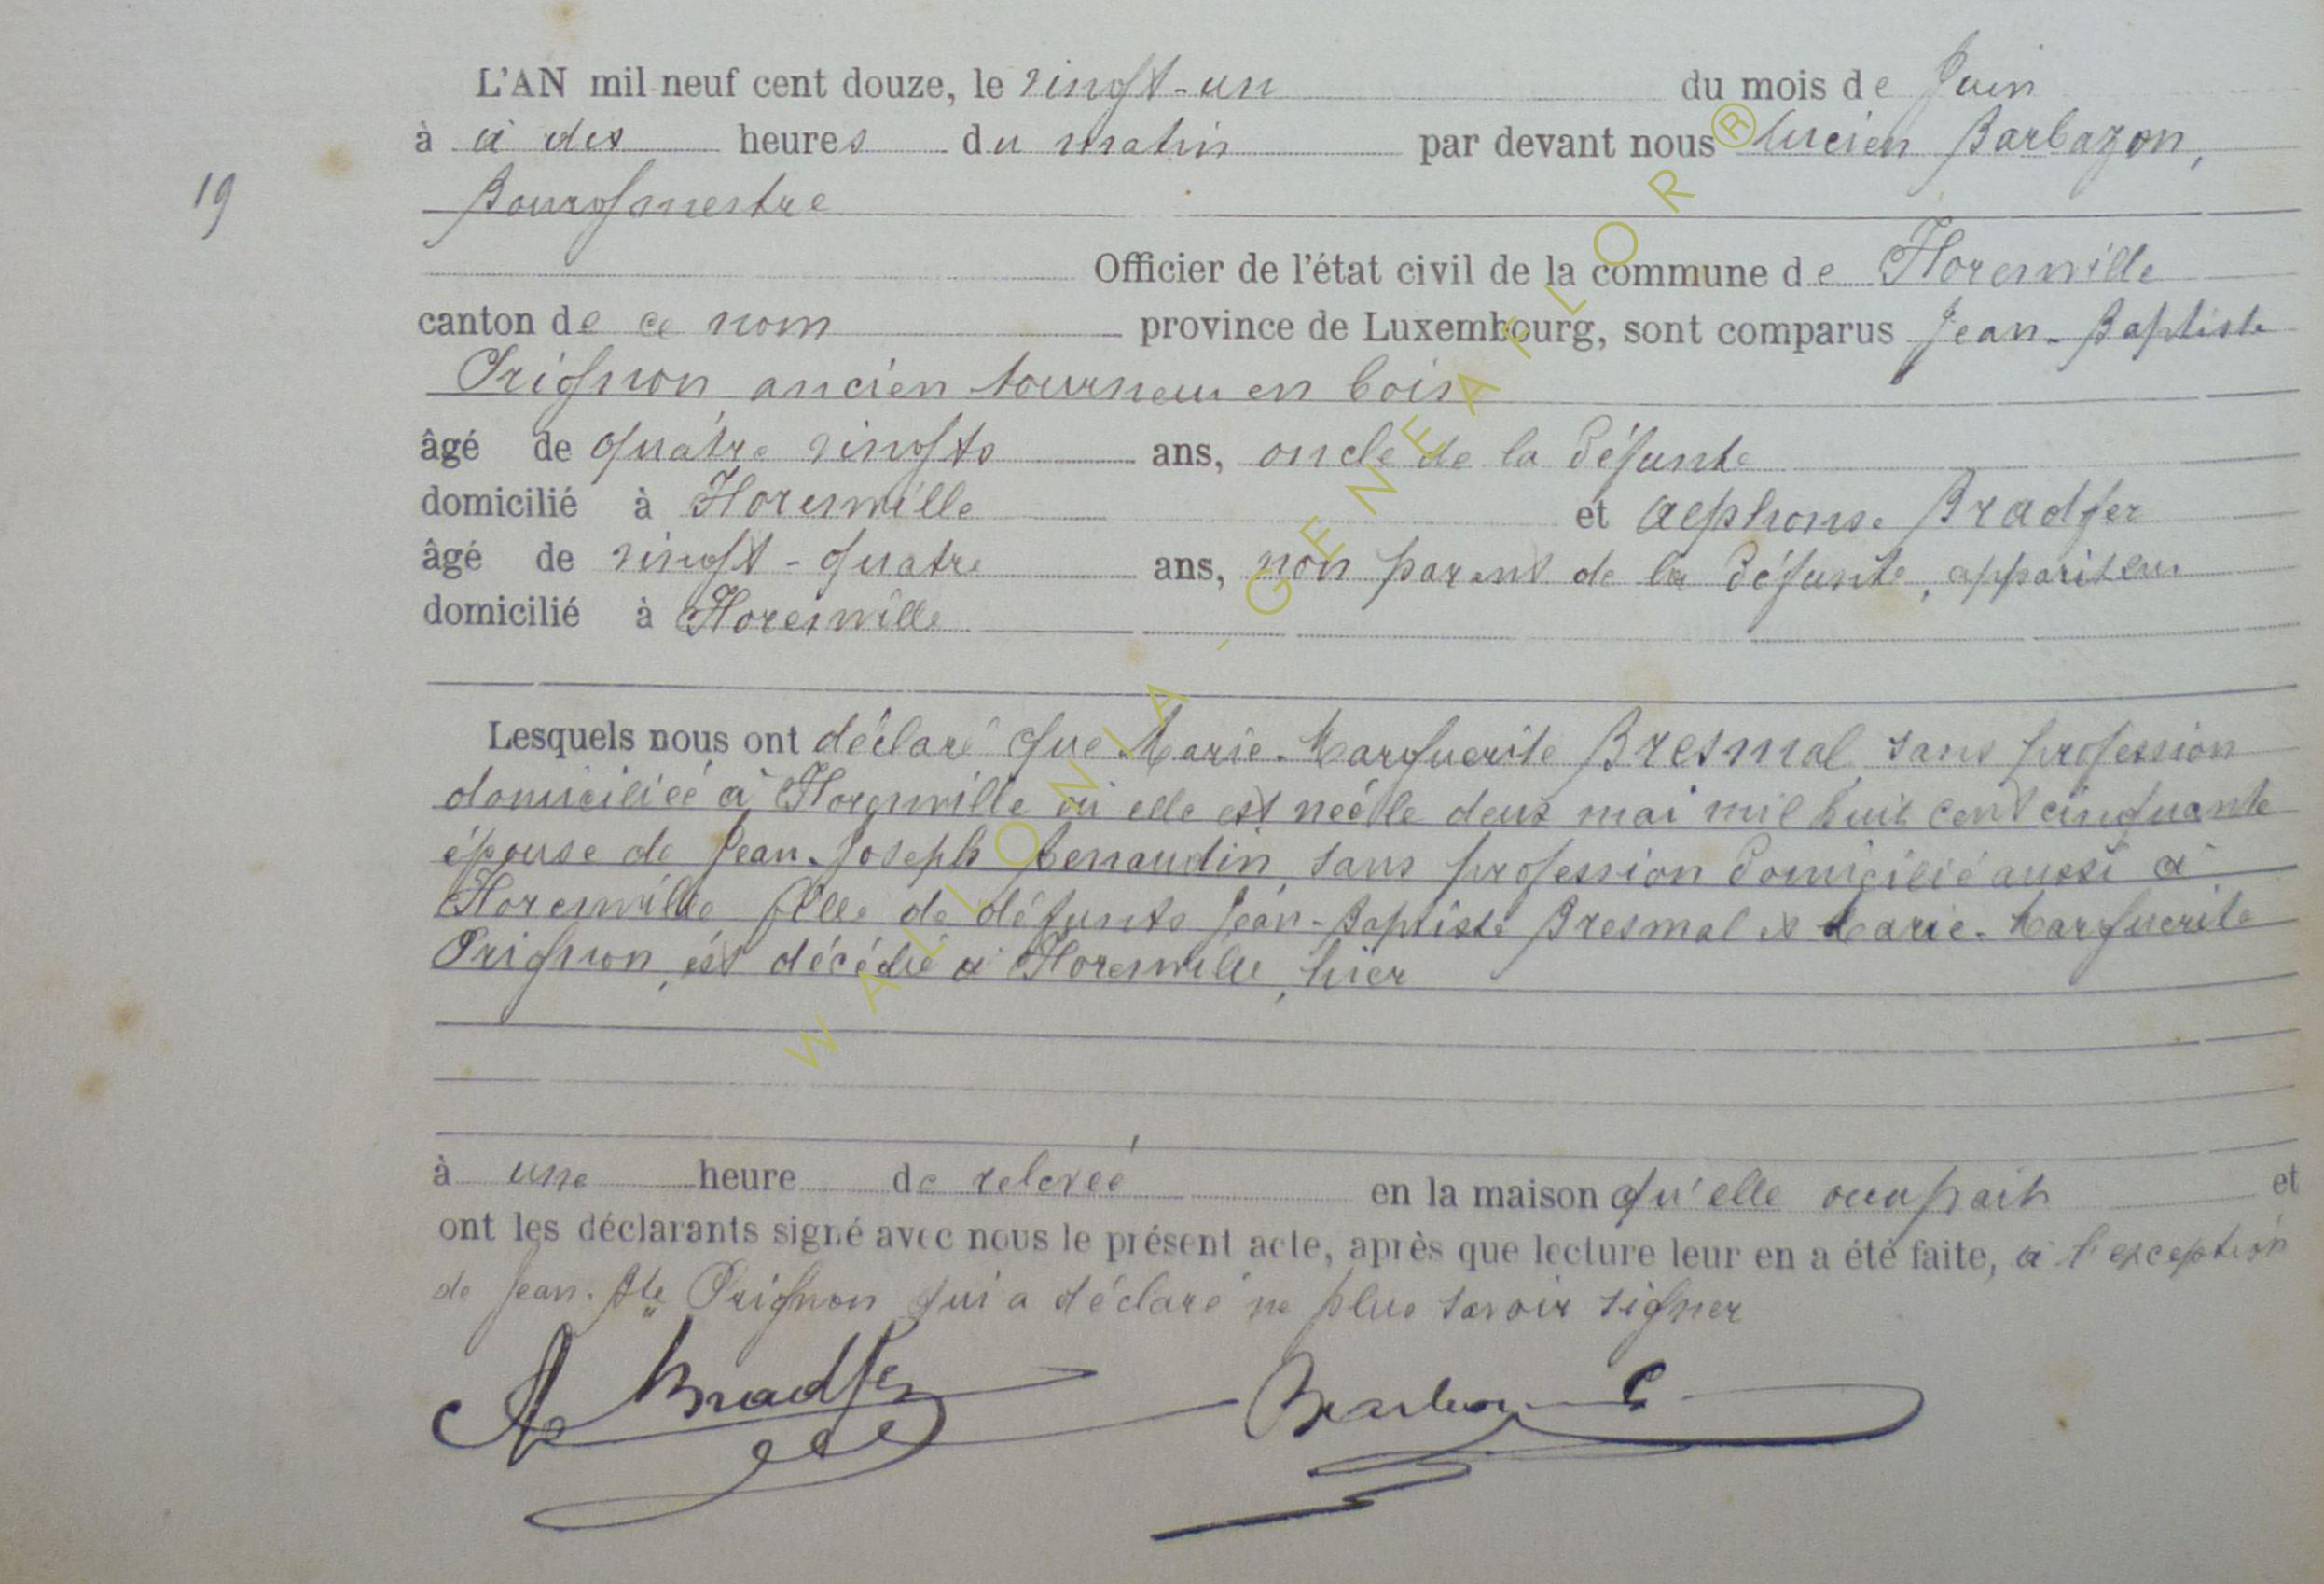 L'AN mil neuf cent douze, le vingt-un du mois de Juin
à à dix heures du matin par devant nous Lucien Barbazon,
19
Bourgmestre
Officier de l'état civil de la commune de Florenville
canton de ce nom province de Luxembourg, sont comparus Jean-Baptiste
Prignon ancien tourneur en bois
âgé de quatre vingts ans, oncle de la défunte
domicilié à Florenville et Alphonse Bradfer
âgé de vingt-quatre ans, non parent de la défunte, appariteur
domicilié à Florenville
Lesquels nous ont déclaré que Marie-Marguerite Bresmal, sans profession
domiciliée à Florenville où elle est née le deux mai mil huit cent cinquante
épouse de Jean-Joseph Renaudin, sans profession domicilié aussi à
Florenville fille de défunts Jean-Baptiste Bresmal et Marie-Marguerite
Prignon, est décédée à Florenville, hier
à une heure de relevée en la maison qu'elle occupait et
ont les déclarants signé avec nous le présent acte, après que lecture leur en a été faite, à l'exception
de Jean-Bte Prignon qui a déclaré ne plus savoir signer
A Bradfer
WALLONIA - GENEAFLOR®